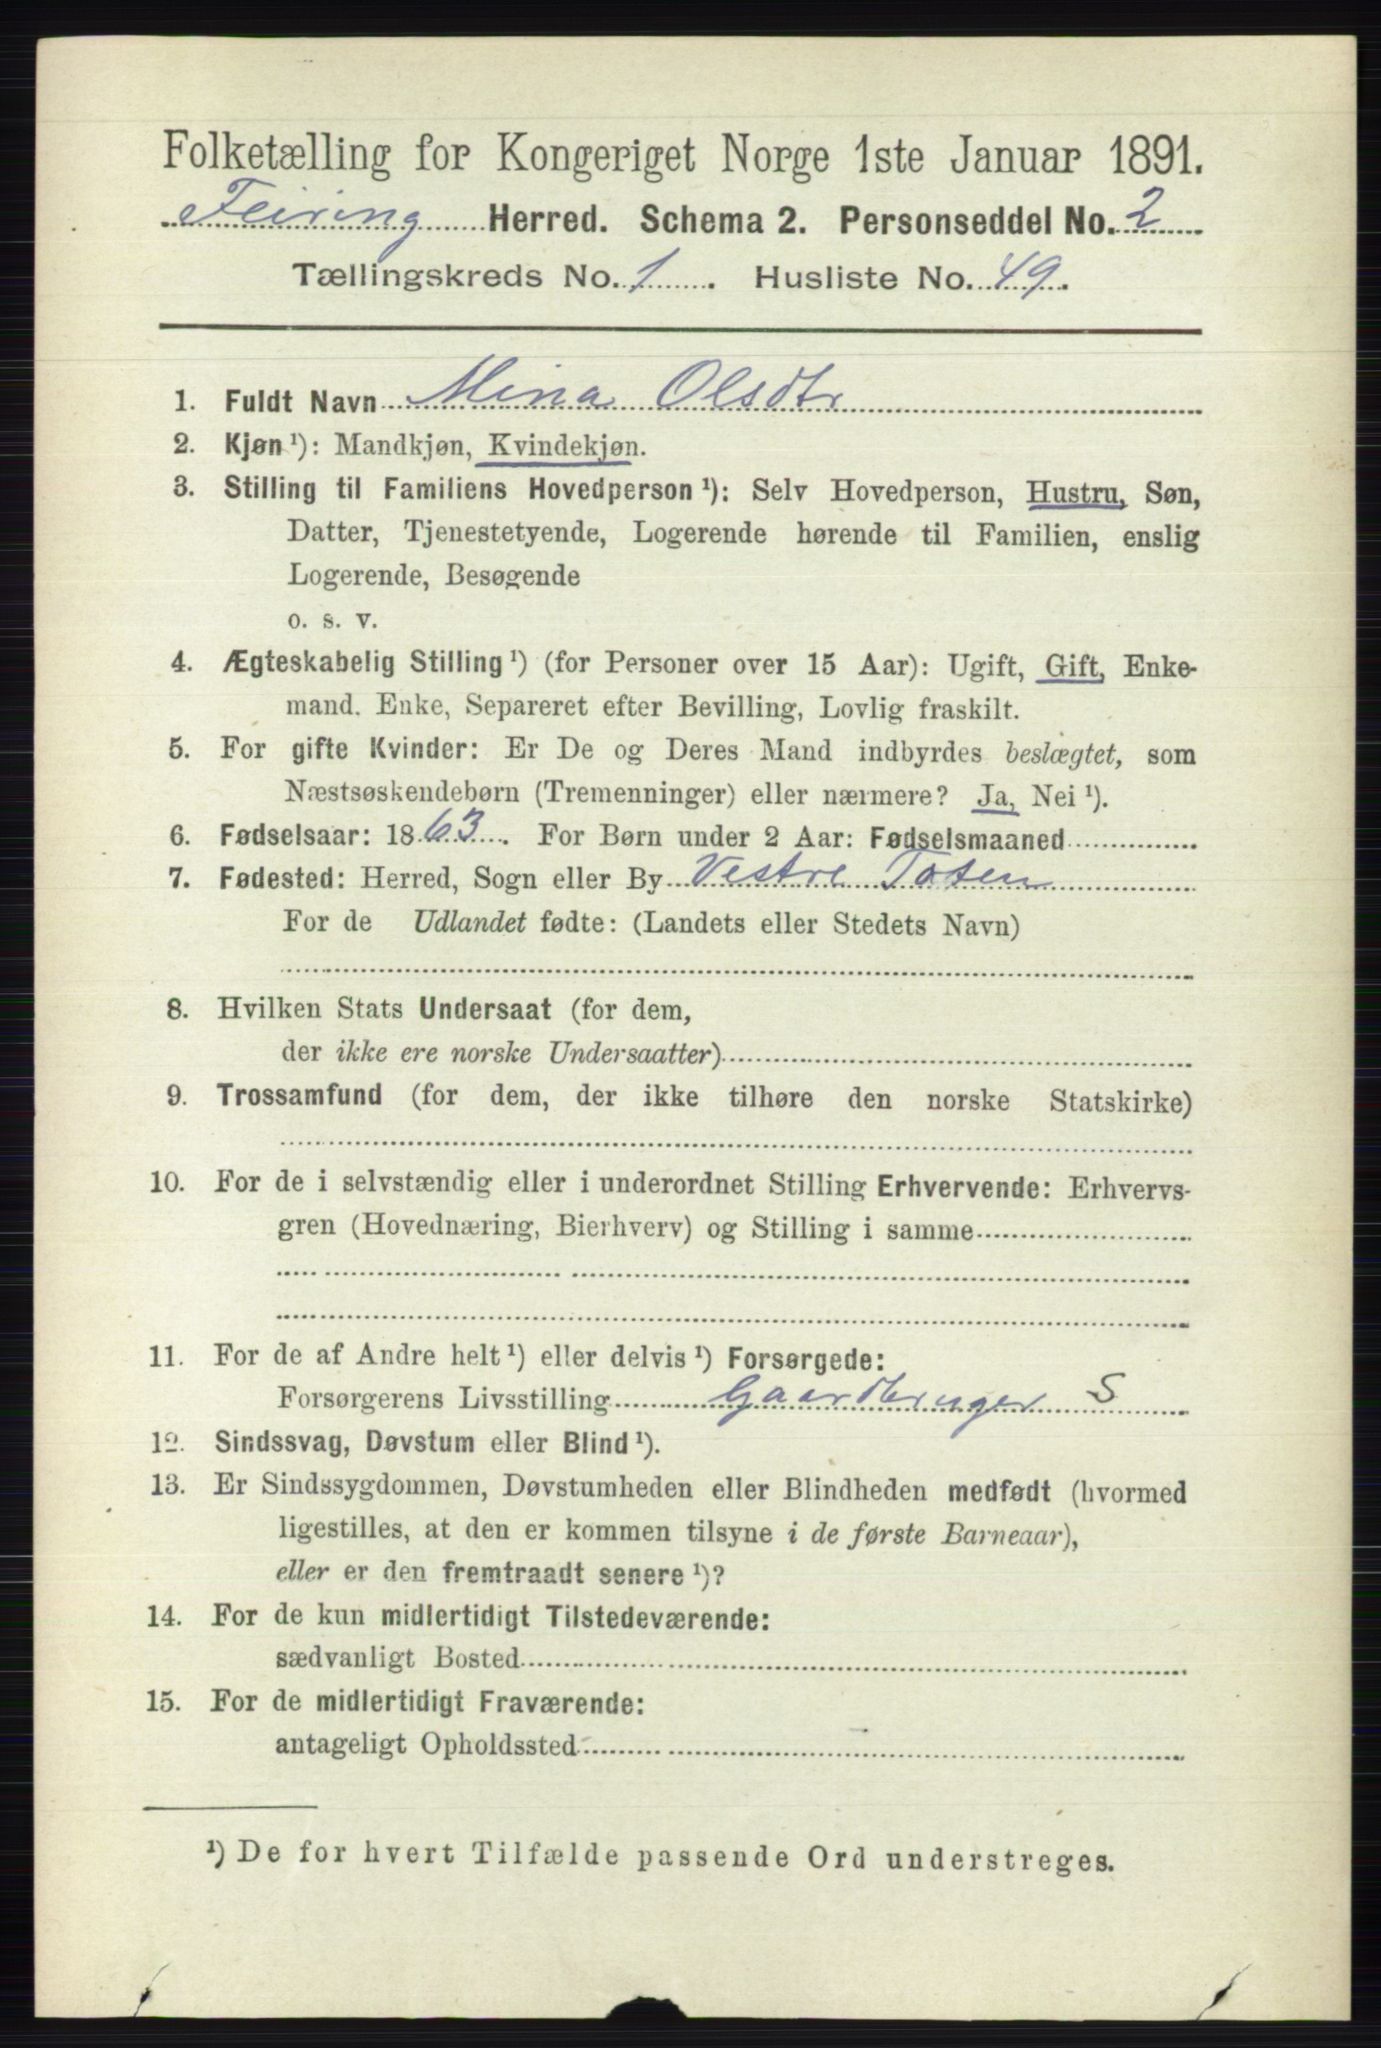 Folketælling for Kongeriget Norge 1ste Januar 1891.
Feiring Herred. Schema 2. Personseddel No. 2
Tællingskreds No. 1. Husliste No. 49.
1. Fuldt Navn Mina Olsdtr
2. Kjøn ¹): Mandkjøn, Kvindekjøn.
3. Stilling til Familiens Hovedperson ¹): Selv Hovedperson, Hustru, Søn,
Datter, Tjenestetyende, Logerende hørende til Familien, enslig
Logerende, Besøgende
o. s. v.
4. Ægteskabelig Stilling ¹) (for Personer over 15 Aar): Ugift, Gift, Enke-
mand. Enke, Separeret efter Bevilling, Lovlig fraskilt.
5. For gifte Kvinder: Er De og Deres Mand indbyrdes beslægtet, som
Næstsøskendebørn (Tremenninger) eller nærmere? Ja, Nei ¹).
6. Fødselsaar: 1863. For Børn under 2 Aar: Fødselsmaaned
7. Fødested: Herred, Sogn eller By Vestre Toten
For de Udlandet fødte: (Landets eller Stedets Navn)
8. Hvilken Stats Undersaat (for dem,
der ikke ere norske Undersaatter)
9. Trossamfund (for dem, der ikke tilhøre den norske Statskirke)
10. For de i selvstændig eller i underordnet Stilling Erhvervende: Erhvervs-
gren (Hovednæring, Bierhverv) og Stilling i samme
11. For de af Andre helt ¹) eller delvis ¹) Forsørgede:
Forsørgerens Livsstilling Gaardbruger S
12. Sindssvag, Døvstum eller Blind ¹).
13. Er Sindssygdommen, Døvstumheden eller Blindheden medfødt (hvormed
ligestilles, at den er kommen tilsyne i de første Barneaar),
eller er den fremtraadt senere ¹)?
14. For de kun midlertidigt Tilstedeværende:
sædvanligt Bosted
15. For de midlertidigt Fraværende:
antageligt Opholdssted
¹) De for hvert Tilfælde passende Ord understreges.